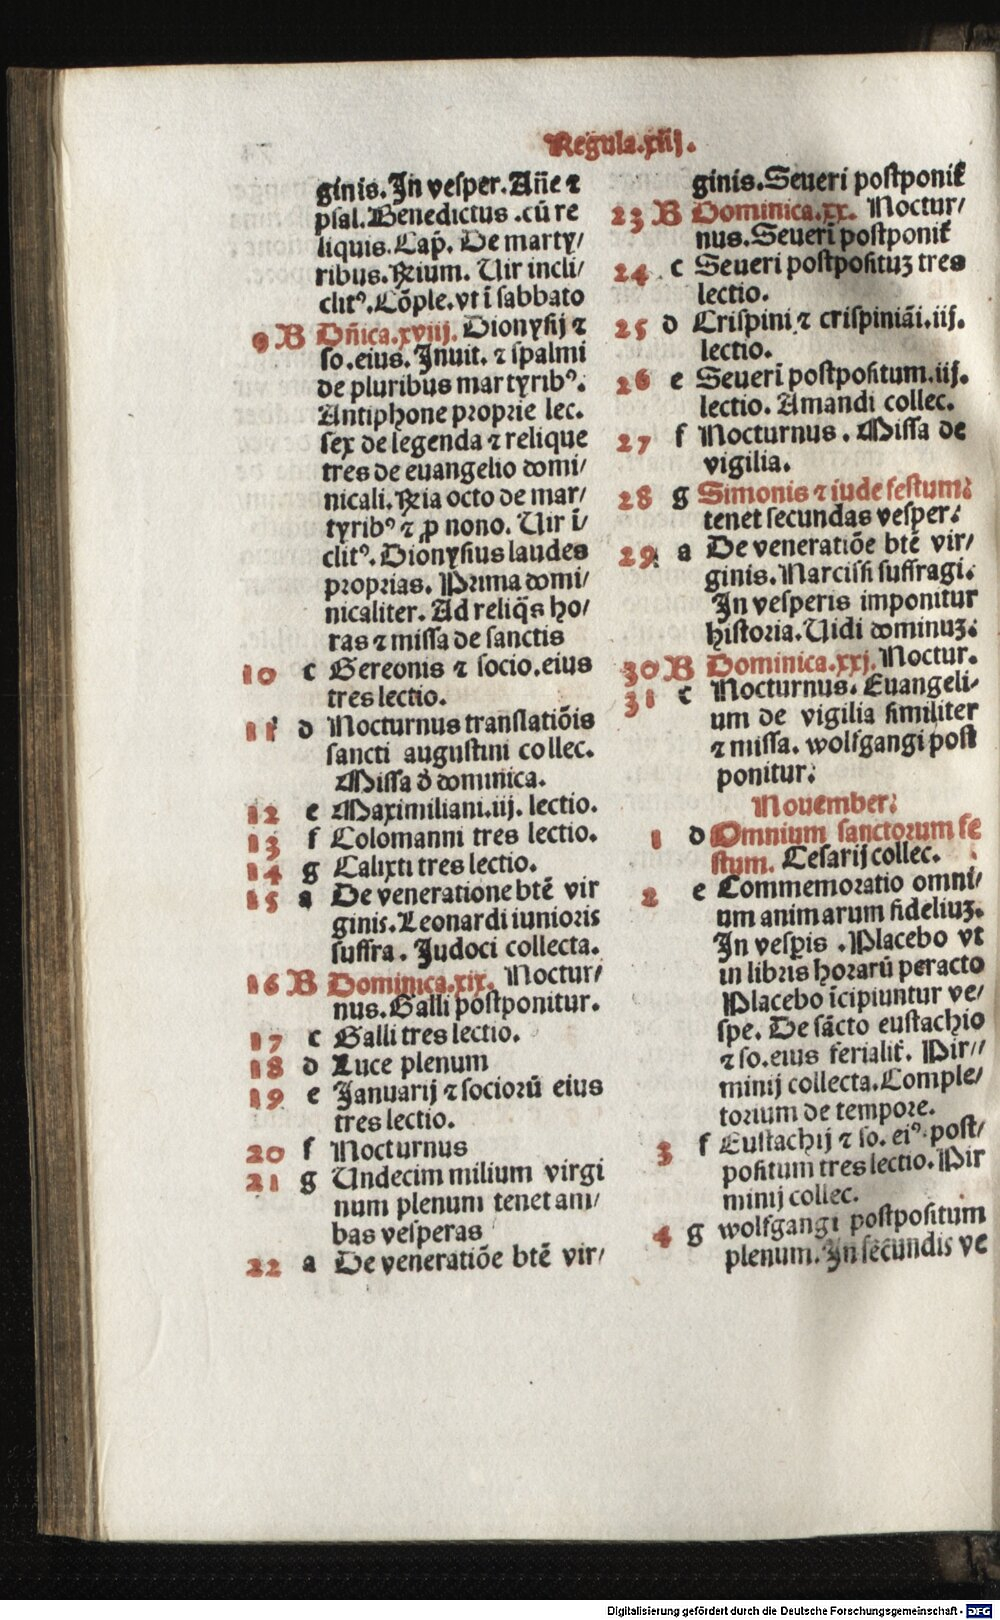 Regula.xiij.
ginis. In vesper. Añe ⁊
psal. Benedictus .cū re
liquis. Cap̄. De marty/
ribus. ℞ium. Uir incli/
clitꝰ. Cōple. vt ī sabbato
9 B Dñica.xviij. Dionysij ⁊
so. eius. Inuit. ⁊ spalmi
de pluribus martyribꝰ.
Antiphone proprie lec.
sex de legenda ⁊ relique
tres de euangelio domi/
nicali. ℞ia octo de mar/
tyribꝰ ⁊ ꝓ nono. Uir ī/
clitꝰ. Dionysius laudes
proprias. Prima domi/
nicaliter. Ad reliq̄s ho/
ras ⁊ missa de sanctis
10 c Gereonis ⁊ socio. eius
tres lectio.
11 d Nocturnus translatiōis
sancti augustini collec.
Missa d̄ dominica.
12 e Maximiliani.iij. lectio.
13 f Colomanni tres lectio.
14 g Calixti tres lectio.
15 a De veneratione btē vir
ginis. Leonardi iunioris
suffra. Judoci collecta.
16 B Dominica.xix. Noctur/
nus. Galli postponitur.
17 c Galli tres lectio.
18 d Luce plenum
19 e Januarij ⁊ sociorū eius
tres lectio.
20 f Nocturnus
21 g Undecim milium virgi
num plenum tenet am/
bas vesperas
22 a De veneratiōe btē vir/
ginis. Seueri postponiť
23 B Dominica.xx. Noctur/
nus. Seueri postponiť
24 c Seueri postposituʒ tres
lectio.
25 d Crispini ⁊ crispiniāi.iij.
lectio.
26 e Seueri postpositum.iij.
lectio. Amandi collec.
27 f Nocturnus. Missa de
vigilia.
28 g Simonis ⁊ iude festum:
tenet secundas vesper.
29 a De veneratiōe btē vir/
ginis. Narcissi suffragi.
In vesperis imponitur
historia. Uidi dominuʒ.
30 B Dominica.xxj. Noctur.
31 c Nocturnus. Euangeli/
um de vigilia similiter
⁊ missa. wolfgangi post
ponitur.
Nouember:
1 d Omnium sanctorum fe
stum. Cesarij collec.
2 e Commemoratio omni/
um animarum fideliuʒ.
In vesp̄is. Placebo vt
in libris horarū peracto
Placebo īcipiuntur ve/
spe. De sācto eustachio
⁊ so. eius ferialiť. Pir//
minij collecta. Comple/
torium de tempore.
3 f Eustachij ⁊ so. eiꝰ post/
positum tres lectio. Pir
minij collec.
4 g wolfgangi postpositum
plenum. In secundis ve
Digitalisierung gefördert durch die Deutsche Forschungsgemeinschaft - DFG